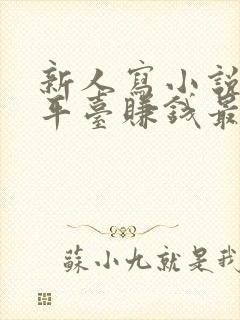 新人寫小說
平臺賺錢最
蘇小九就是我